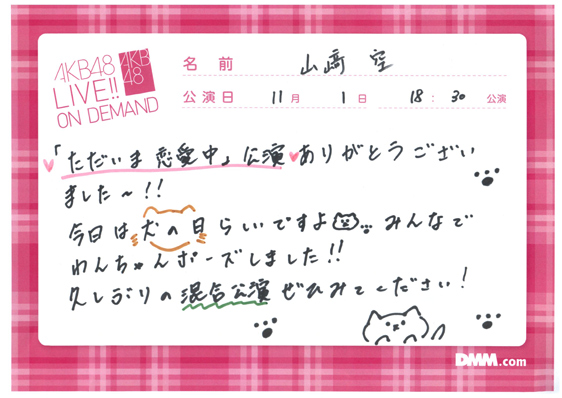 AKB48
LIVE!!
ON DEMAND
AKB
48
名 前 山﨑 空
公演日 11月 1日 18:30 公演
「ただいま 恋愛中」公演 ありがとうござい
ました〜!!
今日は犬の日らしいですよ みんなで
わんちゃんポーズしました!!
久しぶりの混合公演 ぜひみてください!
DMM.com